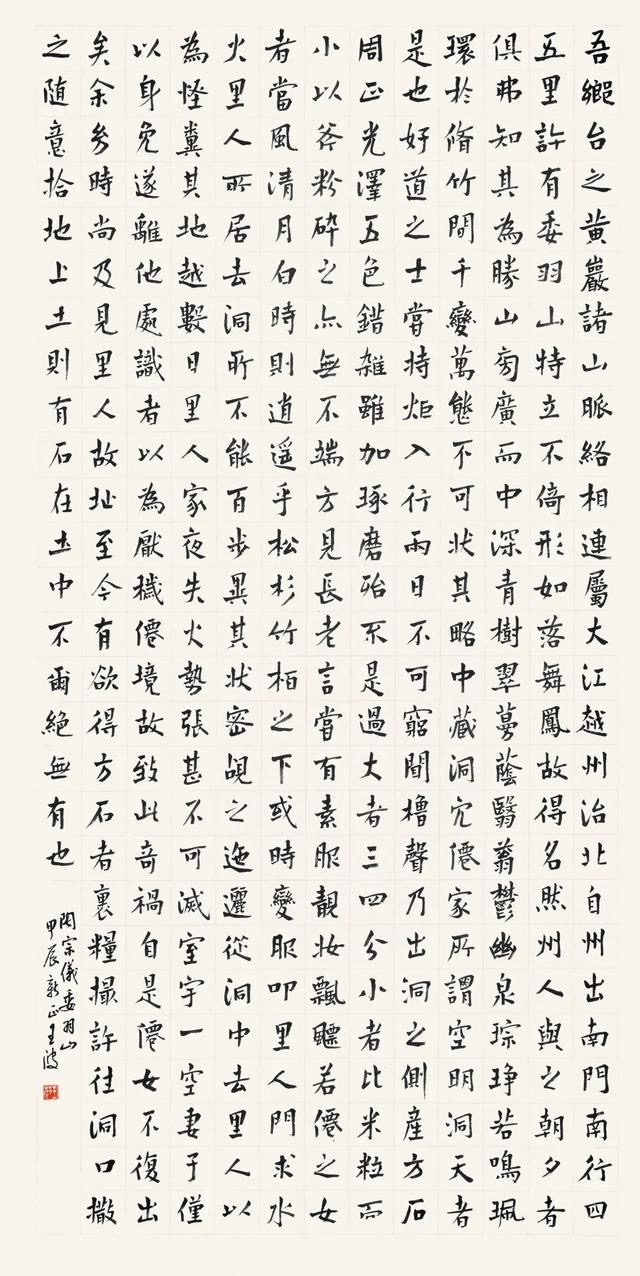 吾鄉台之黃巖諸山脈絡相連屬大江越州治北自州出南門南行四
五里許有委羽山特立不倚形如落舞鳳故得名然州人與之朝夕者
俱弗知其為勝山旁廣而中深青樹翠蔓蔭翳蓊鬱幽泉琮琤若鳴珮
環於脩竹間千變萬態不可狀其略中藏洞穴僊家所謂空明洞天者
是也好道之士嘗持炬入行兩日不可窮聞櫓聲乃出洞之側產方石
周正光澤五色錯雜雖加琢磨殆不是過大者三四分小者比米粒而
小以斧粉碎之亦無不端方見長老言嘗有素服靚妝飄飄若僊之女
者當風清月白時則逍遥乎松杉竹柏之下或時變服叩里人門求水
火里人所居去洞所不能百步異其状密覘之迤邐從洞中去里人以
為怪糞其地越數日里人家夜失火勢張甚不可滅室宇一空妻子僅
以身免遂離他處識者以為厭穢僊境故致此奇禍自是僊女不復出
矣余幼時尚及見里人故址至今有欲得方石者裹糧撮許往洞口撒
之随意拾地上土則有石在土中不爾絕無有也
陶宗儀委羽山
甲辰新正王波